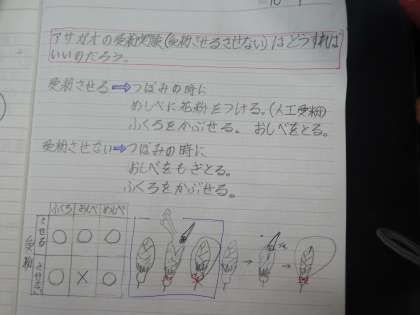 アサガオの受粉実験(受粉させるさせない)はどうすれば
いいのだろう。
受粉させる⇒つぼみの時に
めしべに花粉をつける。(人工受粉)
ふくろをかぶせる。 おしべをとる。
受粉させない⇒つぼみの時に
おしべをもぎとる。
ふくろをかぶせる。
ふくろ おしべ めしべ
受粉
させる ○ ○ ○
させない ○ × ○